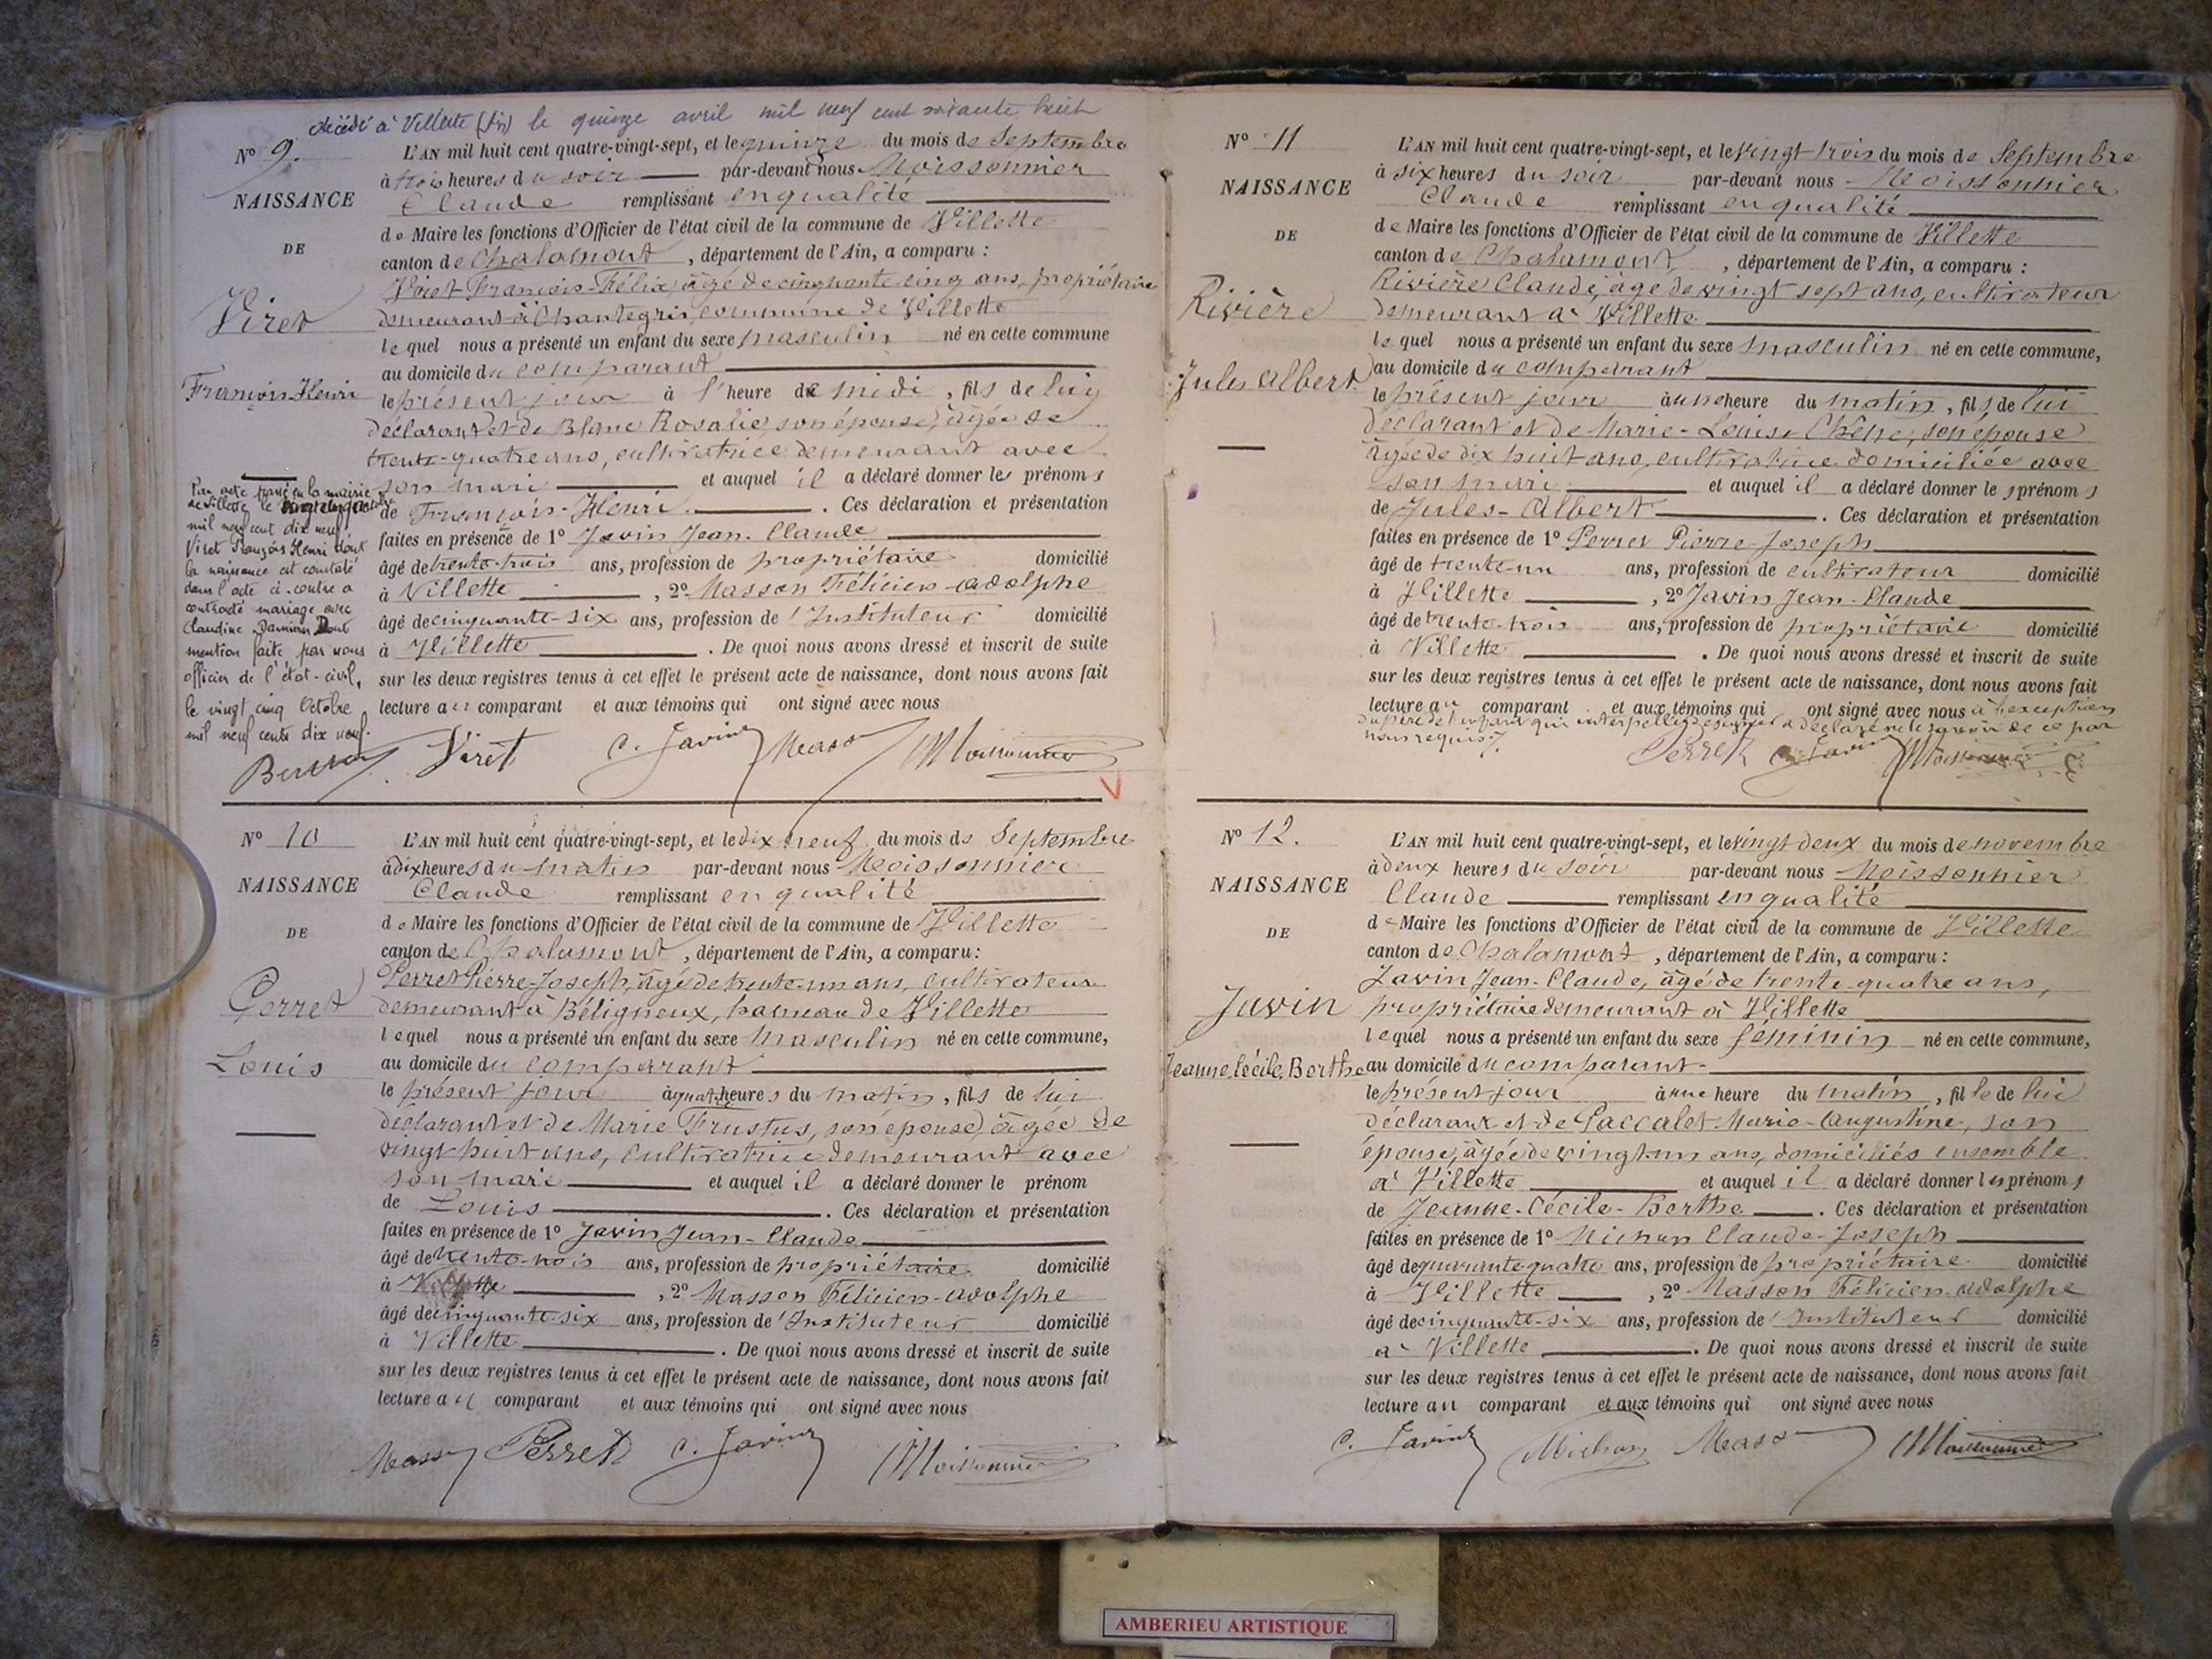 décédé à Villette (Ain) le quinze avril mil neuf cent soixante huit
N° 9.
NAISSANCE
DE
Viret
François-Henri
L'AN mil huit cent quatre-vingt-sept, et le quinze du mois de Septembre
à trois heures du soir par-devant nous Moissonnier
Claude remplissant en qualité
de Maire les fonctions d'Officier de l'état civil de la commune de Villette
canton de Chalamont, département de l'Ain, a comparu :
Viret François-Félix, âgé de cinquante cinq ans, propriétaire
demeurant à Chantegris, commune de Villette
lequel nous a présenté un enfant du sexe masculin né en cette commune
au domicile du comparant
le présent jour à l'heure de midi, fils de luy
déclarant et de Blanc Rosalie, son épouse, âgée de
trente-quatre ans, cultivatrice demeurant avec
son mari et auquel il a déclaré donner les prénoms
de François-Henri. Ces déclaration et présentation
faites en présence de 1° Javin Jean-Claude
âgé de trente-trois ans, profession de propriétaire domicilié
à Villette, 2° Masson Félicien-Adolphe
âgé de cinquante-six ans, profession de Instituteur domicilié
à Villette. De quoi nous avons dressé et inscrit de suite
sur les deux registres tenus à cet effet le présent acte de naissance, dont nous avons fait
lecture au comparant et aux témoins qui ont signé avec nous
Par acte passé en la mairie
de Villette le vingt cinq octobre
mil neuf cent dix neuf
Viret François Henri dont
la naissance est constaté
dans l'acte ci-contre a
contracté mariage avec
Claudine Damian Dont
mention faite par nous
officier de l'état-civil,
le vingt cinq Octobre
mil neuf cent dix neuf.
Viret C. Javin Masson Moissonnier
N° 10
NAISSANCE
DE
Perret
Louis
L'AN mil huit cent quatre-vingt-sept, et le dix neuf du mois de Septembre
à dix heures du matin par-devant nous Moissonnier
Claude remplissant en qualité
de Maire les fonctions d'Officier de l'état civil de la commune de Villette
canton de Chalamont, département de l'Ain, a comparu :
Perret Pierre-Joseph, âgé de trente-un ans, cultivateur
demeurant à Béligneux, hameau de Villette
lequel nous a présenté un enfant du sexe masculin né en cette commune,
au domicile du comparant
le présent jour à quatre heures du matin, fils de lui
déclarant et de Marie Frustus, son épouse, âgée de
vingt-huit ans, cultivatrice demeurant avec
son mari et auquel il a déclaré donner le prénom
de Louis. Ces déclaration et présentation
faites en présence de 1° Javin Jean-Claude
âgé de trente-trois ans, profession de propriétaire domicilié
à Villette, 2° Masson Félicien-Adolphe
âgé de cinquante-six ans, profession de Instituteur domicilié
à Villette. De quoi nous avons dressé et inscrit de suite
sur les deux registres tenus à cet effet le présent acte de naissance, dont nous avons fait
lecture au comparant et aux témoins qui ont signé avec nous
Masson Perret C. Javin Moissonnier
N° 11
NAISSANCE
DE
Rivière
Jules Albert
L'AN mil huit cent quatre-vingt-sept, et le vingt trois du mois de Septembre
à six heures du soir par-devant nous Moissonnier
Claude remplissant en qualité
de Maire les fonctions d'Officier de l'état civil de la commune de Villette
canton de Chalamont, département de l'Ain, a comparu :
Rivière Claude, âgé de vingt sept ans, cultivateur
demeurant à Villette
lequel nous a présenté un enfant du sexe masculin né en cette commune,
au domicile du comparant
le présent jour à une heure du matin, fils de lui
déclarant et de Marie-Louise Chêne, son épouse
âgée de dix huit ans, cultivatrice domiciliée avec
son mari et auquel il a déclaré donner les prénoms
de Jules-Albert. Ces déclaration et présentation
faites en présence de 1° Perret Pierre-Joseph
âgé de trente-un ans, profession de cultivateur domicilié
à Villette, 2° Javin Jean-Claude
âgé de trente-trois ans, profession de propriétaire domicilié
à Villette. De quoi nous avons dressé et inscrit de suite
sur les deux registres tenus à cet effet le présent acte de naissance, dont nous avons fait
lecture au comparant et aux témoins qui ont signé avec nous à l'exception
du père de l'enfant qui interpellé de signer a déclaré ne le savoir de ce par
nous requis.
Perret C. Javin Moissonnier
N° 12.
NAISSANCE
DE
Javin
Jeanne, Cécile, Berthe
L'AN mil huit cent quatre-vingt-sept, et le vingt deux du mois de novembre
à deux heures du soir par-devant nous Moissonnier
Claude remplissant en qualité
de Maire les fonctions d'Officier de l'état civil de la commune de Villette
canton de Chalamont, département de l'Ain, a comparu :
Javin Jean-Claude, âgé de trente-quatre ans,
propriétaire demeurant à Villette
lequel nous a présenté un enfant du sexe féminin né en cette commune,
au domicile du comparant
le présent jour à une heure du matin, fille de lui
déclarant et de Paccalet Marie-Augustine, son
épouse, âgée de vingt-un ans, domiciliés ensemble
à Villette et auquel il a déclaré donner les prénoms
de Jeanne-Cécile-Berthe. Ces déclaration et présentation
faites en présence de 1° Michon Claude-Joseph
âgé de quarante quatre ans, profession de propriétaire domicilié
à Villette, 2° Masson Félicien-Adolphe
âgé de cinquante-six ans, profession de Instituteur domicilié
à Villette. De quoi nous avons dressé et inscrit de suite
sur les deux registres tenus à cet effet le présent acte de naissance, dont nous avons fait
lecture au comparant et aux témoins qui ont signé avec nous
C. Javin Michon Masson Moissonnier
AMBERIEU ARTISTIQUE